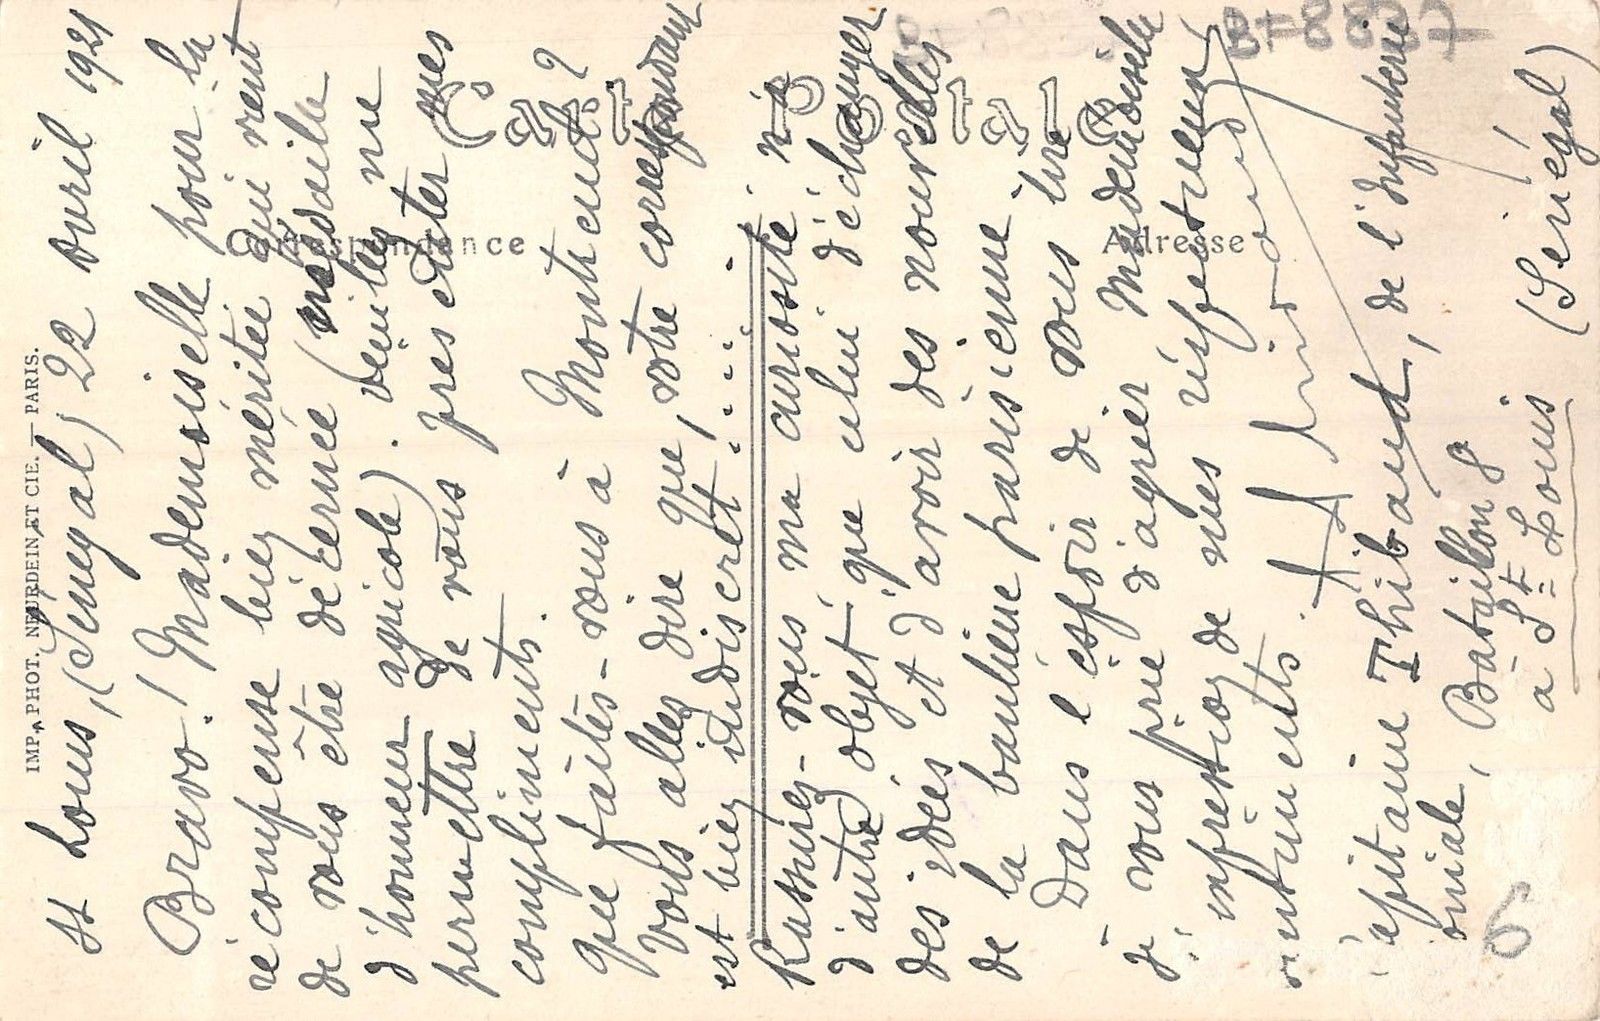 St Louis, (Sénégal) 22 avril 1921
Bravo! Mademoiselle pour la
récompense bien méritée qui vient
de vous être décernée (médaille
d'honneur agricole). Veuillez me
permettre de vous présenter mes
compliments.
que faites-vous à Montricult?
Vous allez dire que, votre correspondant
est bien indiscret!......
Rassurez-vous, ma curiosité n'a
d'autre objet que celui d'échanger
des idées et d'avoir des nouvelles
de la banlieue parisienne.
Dans l'espoir de vous lire
je vous prie d'agréer Mademoiselle
l'impression de mes respectueux
sentiments.
Capitaine Thibaud, de l'Infanterie
oniale, Bataillon 8
à St Louis (Sénégal)
IMP. PHOT. NEURDEIN ET CIE. — PARIS.
Correspondance
Adresse
Carte Postale
B+8887
6